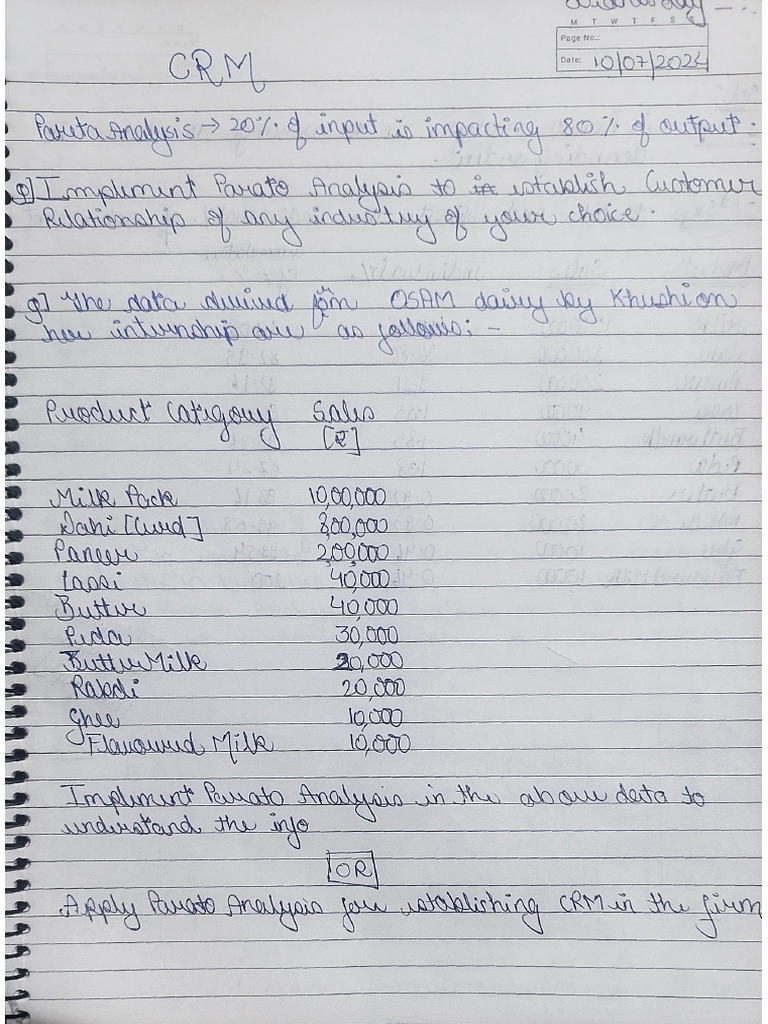 M T W T F S S
Page No.:
Date: 10/07/2024
CRM
Pareto Analysis → 20% of input is impacting 80% of output.
Q] Implement Parato Analysis to establish Customer
Relationship of any industry of your choice.
Q] The data derived from OSAM dairy by Khushi on
her internship are as follows: -
Product Category Sales
[₹]
Milk Pack 10,00,000
Dahi [Curd] 800,000
Paneer 200,000
Lassi 40,000
Butter 40,000
Peda 30,000
Butter Milk 20,000
Rabdi 20,000
Ghee 10,000
Flavoured Milk 10,000
Implement Parato Analysis in the above data to
understand the info
OR
Apply Parato Analysis for establishing CRM in the firm